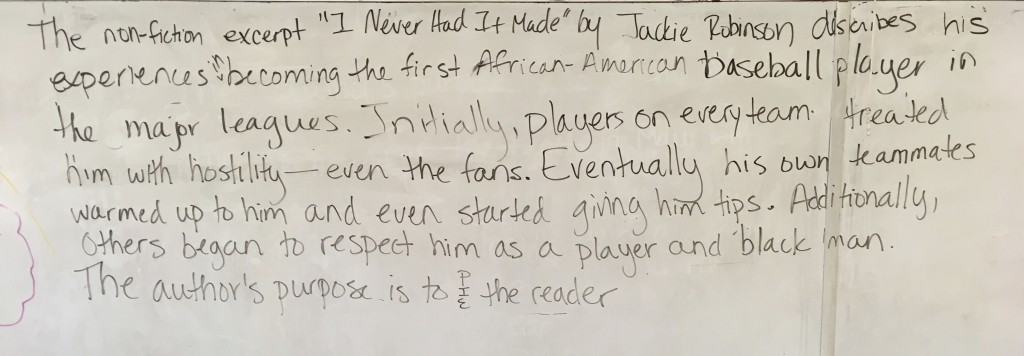 The non-fiction excerpt "I Never Had It Made" by Jackie Robinson describes his
experiences in becoming the first African-American baseball player in
the major leagues. Initially, players on every team treated
him with hostility — even the fans. Eventually his own teammates
warmed up to him and even started giving him tips. Additionally,
others began to respect him as a player and black man.
The author's purpose is to PIE the reader